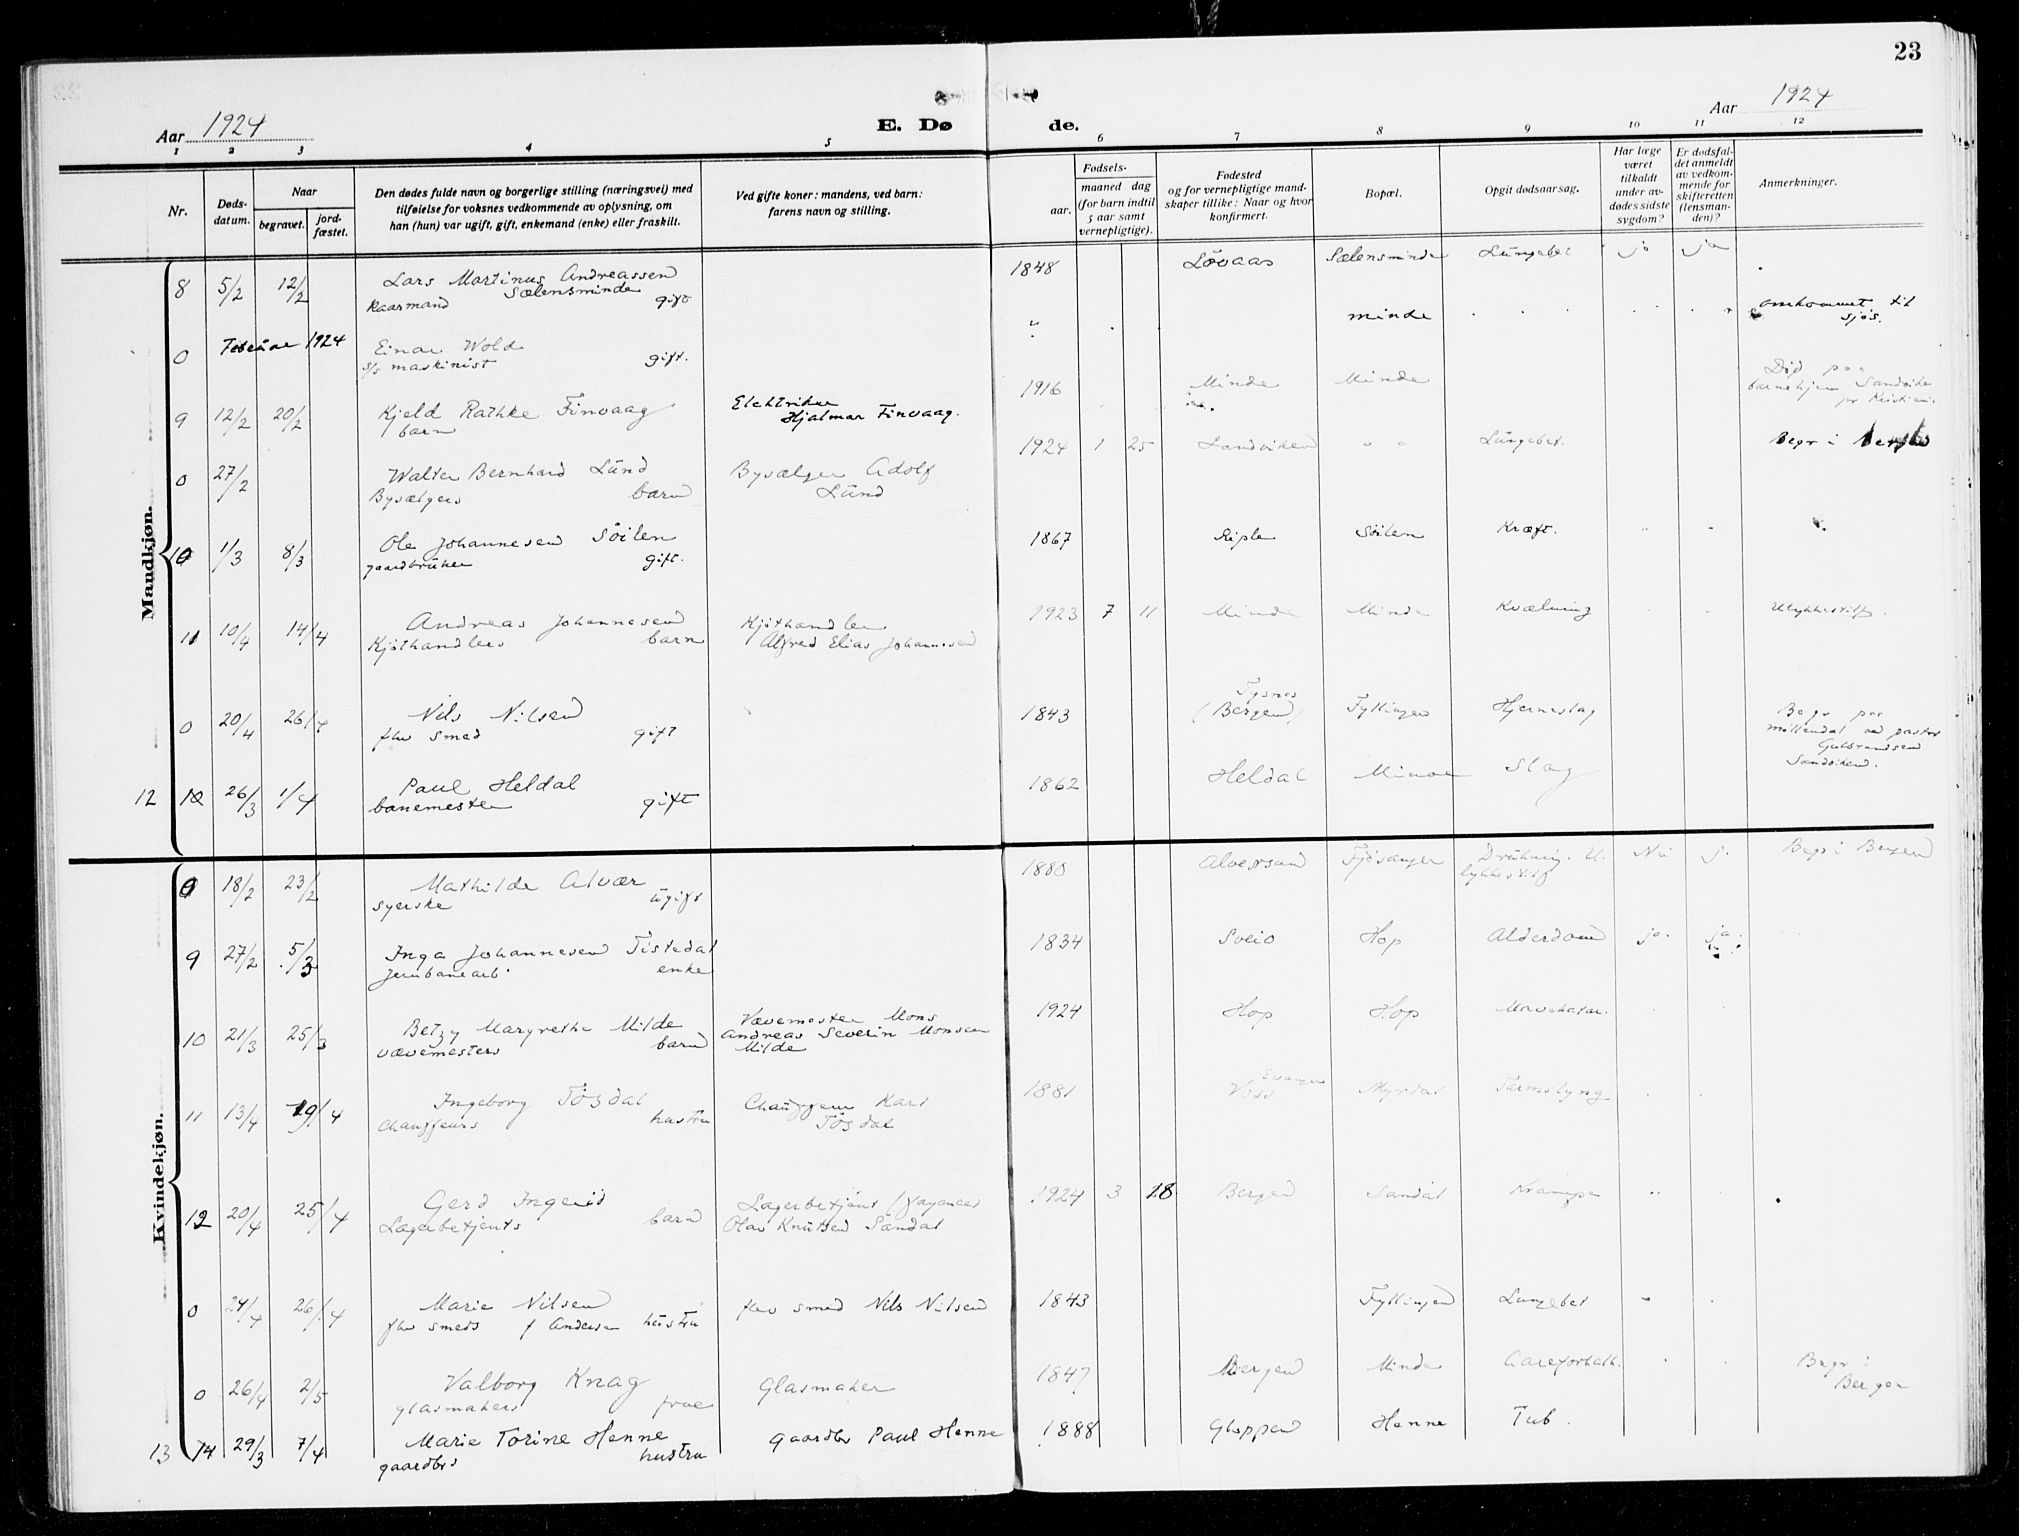 23
Aar 1924
E. Dø de.
Aar 1924
1 2 3 4 5 6 7 8 9 10 11 12
Nr.
Døds-
datum.
Naar
begravet.
jord-
fæstet.
Den dødes fulde navn og borgerlige stilling (næringsvei) med
tilføielse for voksnes vedkommende av oplysning, om
han (hun) var ugift, gift, enkemand (enke) eller fraskilt.
Ved gifte koner: mandens, ved barn:
farens navn og stilling.
Fødsels-
aar.
maaned dag
(for barn indtil
5 aar samt
vernepligtige).
Fødested
og for vernepligtige mand-
skaper tillike: Naar og hvor
konfirmert.
Bopæl.
Opgit dødsaarsag.
Har læge
været
tilkaldt
under av-
dødes sidste
sygdom?
Er dødsfal-
det anmeldt
av vedkom-
mende for
skifteretten
(lensman-
den)?
Anmerkninger.
Mandkjøn.
8 5/2 12/2 Lars Martinus Andreassen 1848 Løvaas Sælensminde Lungebet ja ja
Sælensminde
Kaarmand gift
0 Februar 1924 Einar Wold " minde omkommet til
sjøs.
s/s maskinist gift.
9 12/2 20/2 Kjeld Rathke Finvaag Elektriker 1916 Minde Minde Død paa
barn Hjalmar Finvaag. barnehjem Sandvika
pr Kristiani.
0 27/2 Walter Bernhard Lund Bysælger Adolf 1924 1 25 Sandviken " " Lungebet. Begr i
Bysælgers barn Lund
10 1/3 8/3 Ole Johannesen Søilen 1867 Riple Søilen Kræft.
gaardbruker gift.
11 10/4 14/4 Andreas Johannesen Kjøthandler 1923 7 11 Minde Minde Kvælning Ulykkestilf.
Kjøthandlers barn Alfred Elias Johannesen
0 20/4 26/4 Nils Nilsen 1843 Tysnes
(Bergen) Fyllingen Hjerneslag Begr paa
Møllendal ved pastor
Gulbrandsen
Sandviken.
fhv smed gift
12 26/3 1/4 Paul Heldal 1862 Heldal Minde Slag
banemester gift
Kvindekjøn.
0 18/2 23/2 Mathilde Alvær 1880 Alversund Fjøsanger Drukning. U. Nei j. Begr i Bergen
syerske ugift lykkestilf
9 27/2 5/3 Inga Johannesen Tistedal 1834 Sveio Hop Alderdom ja. ja.
Jernbanearb. enke
10 21/3 25/3 Betzy Margrethe Milde Vævemester Mons 1924 Hop Hop Mavekatar.
vævemesters barn Andreas Severin Monsen
Milde
11 13/4 19/4 Ingeborg Tøsdal Chauffeur Karl 1881 Evanger
Voss Myrdal Tarmslyng
Chauffeurs hustru Tøsdal
12 20/4 25/4 Gerd Ingerid Lagerbetjent (fayance) 1924 3 28 Bergen Sandal Krampe
Lagerbetjents barn Olav Knutsen Sandal
0 24/4 26/4 Marie Nilsen fhv smed Nils Nilsen 1843 Fyllingen Lungebet
fhv smeds f Andersen hustru
0 26/4 2/5 Valborg Knag Glasmaker 1847 Bergen Minde Aareforkalk. Begr i
Bergen
glasmakers frue
13 14 29/3 7/4 Marie Torine Henne Gaardbr Paul Henne 1888 Gloppen Henne Tub.
gaardbrs hustru